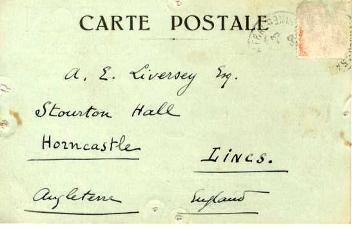 CARTE POSTALE
A. E. Liversey Esq.
Stourton Hall
Horncastle
Lincs.
Angleterre England